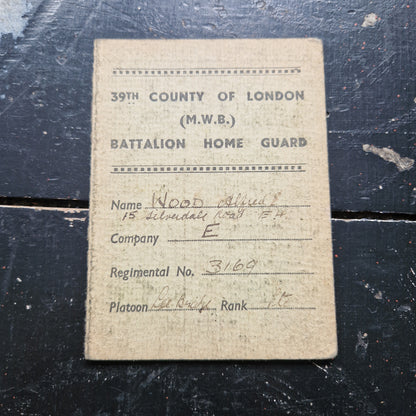 39TH COUNTY OF LONDON
(M.W.B.)
BATTALION HOME GUARD
Name WOOD Alfred
15 Silverdale Road E.4.
Company E
Regimental No. 3169
Platoon Rank Pte